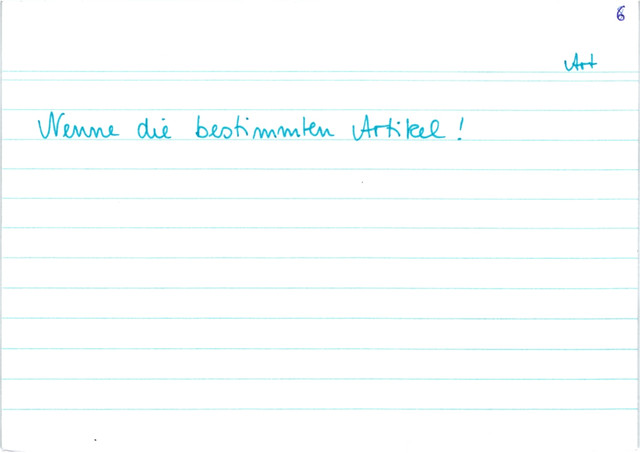 6
Art
Nenne die bestimmten Artikel!